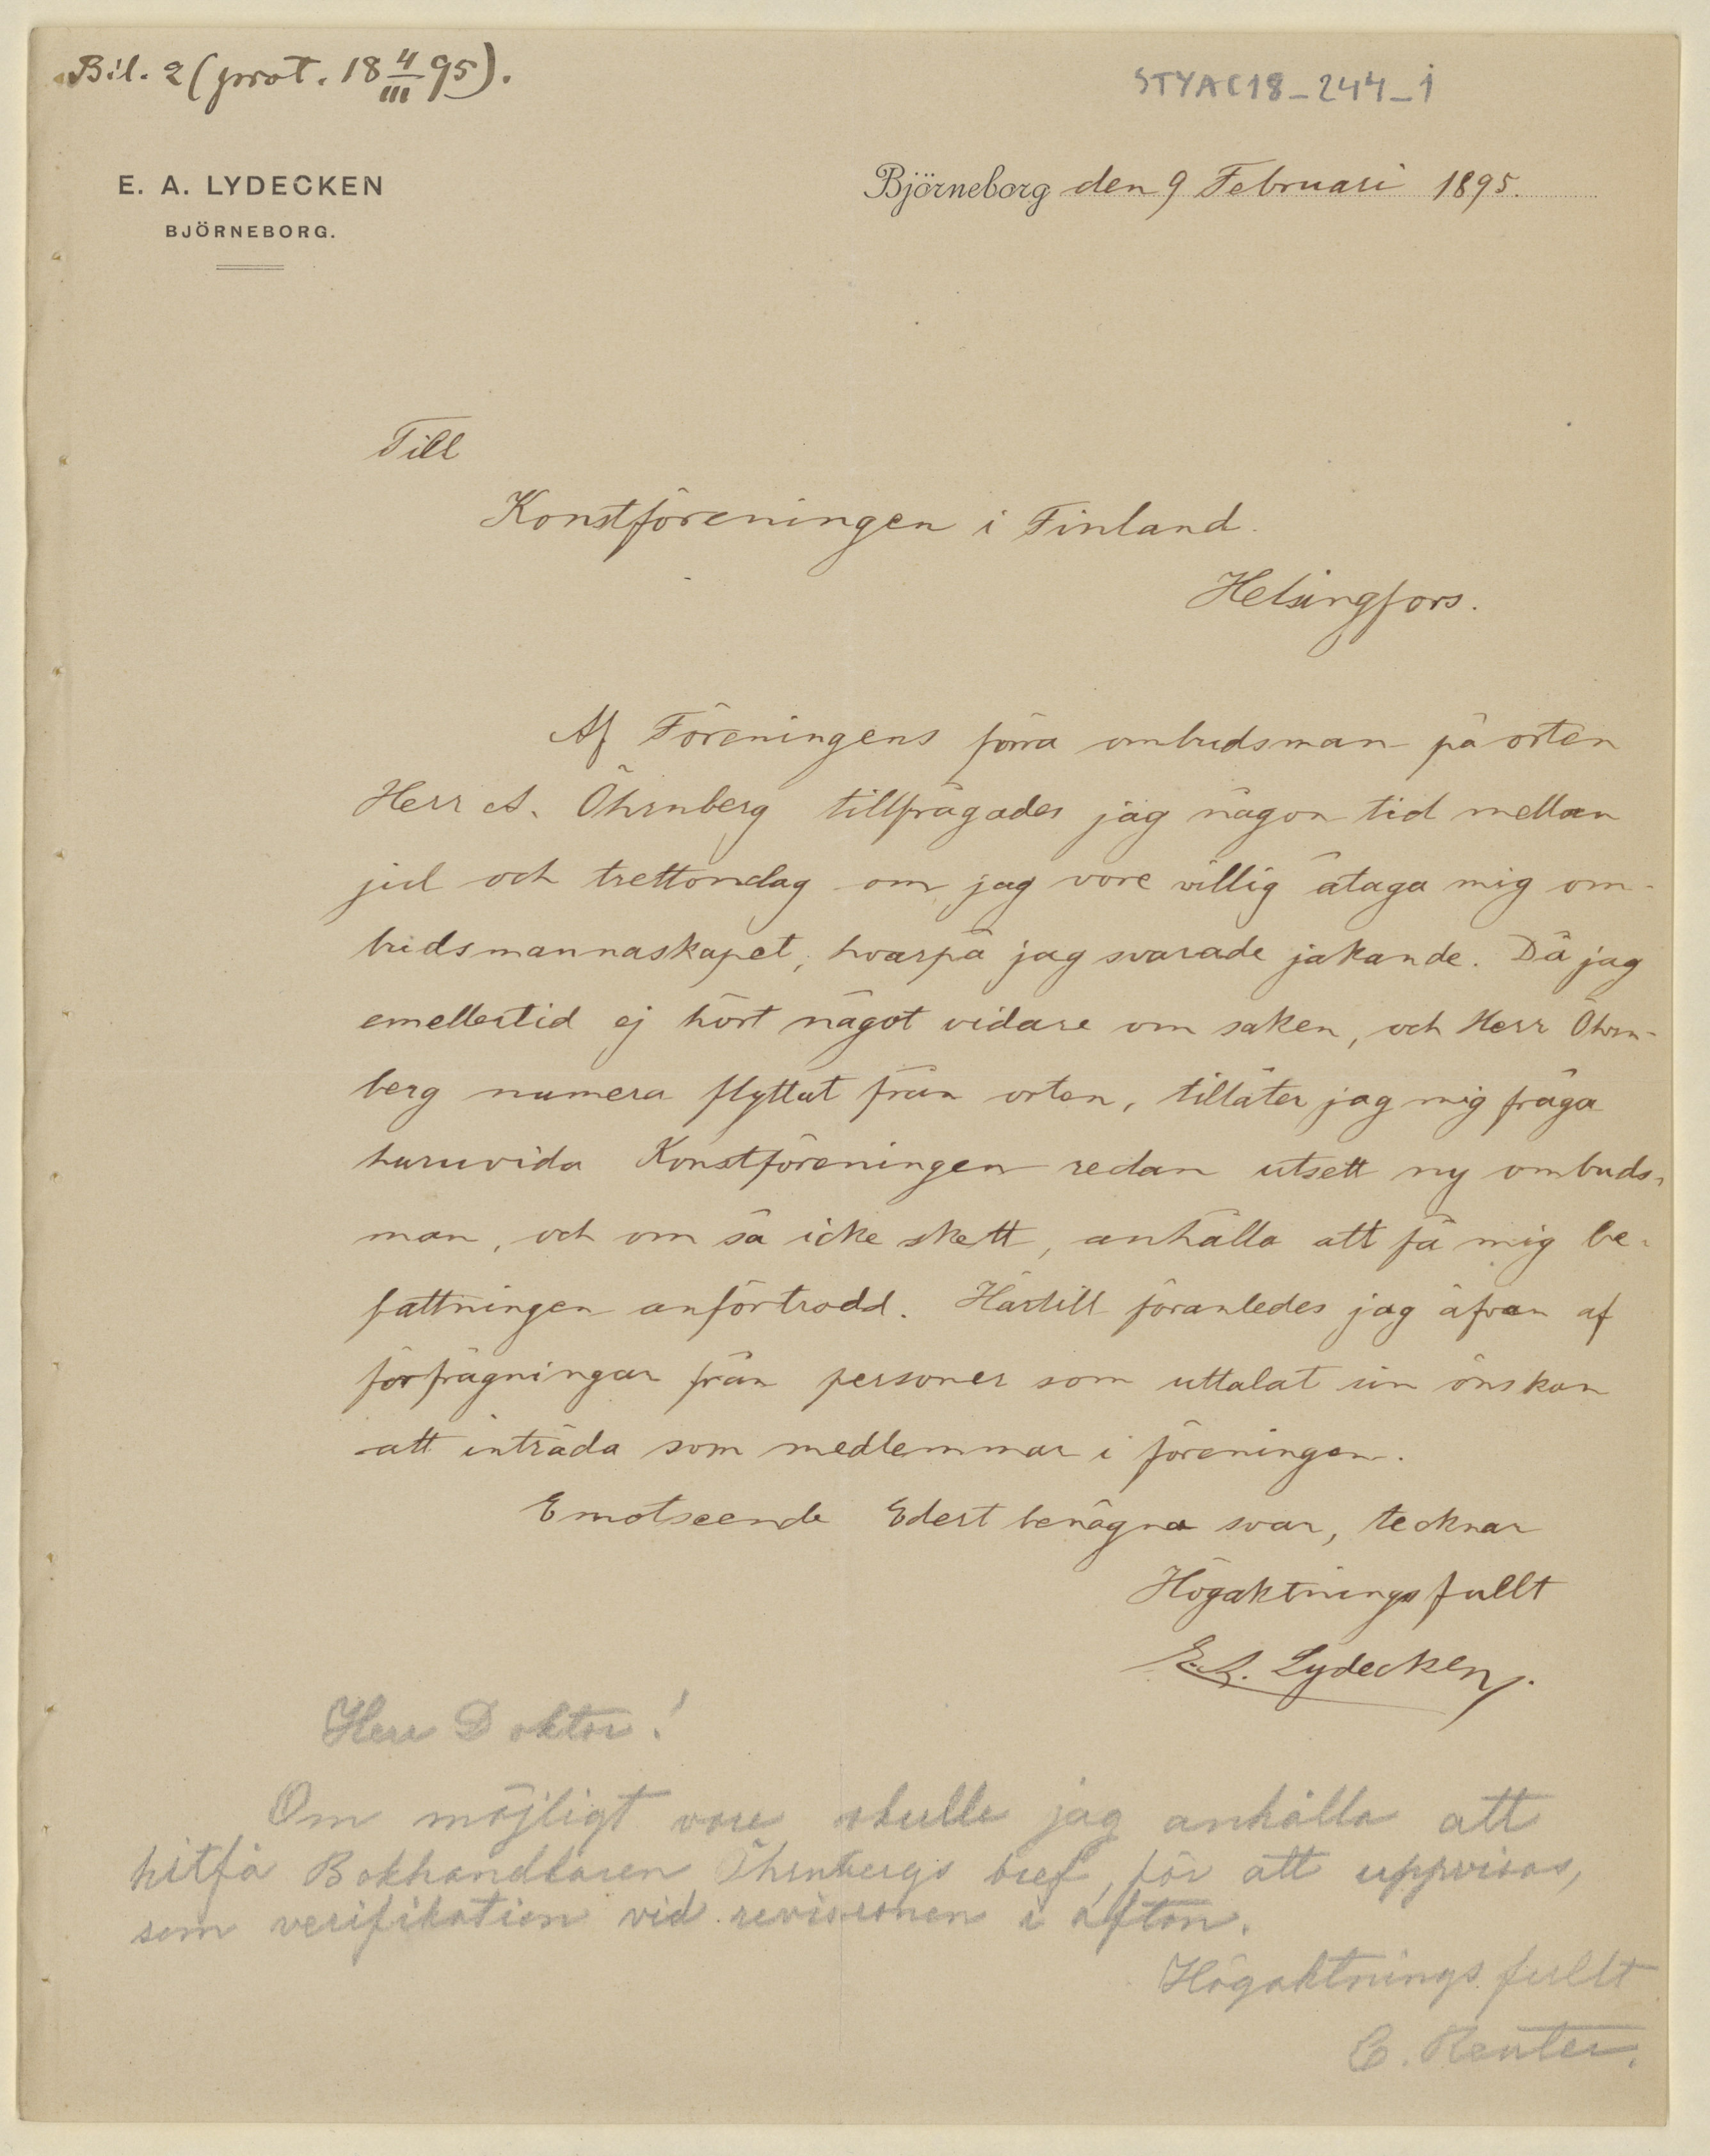 Bil. 2 (prot. 18 4/III 95).
STYAC18_244_1
E. A. LYDECKEN
BJÖRNEBORG.
Björneborg den 9 Februari 1895.
Till
Konstföreningen i Finland.
Helsingfors.
Af Föreningens förra ombudsman på orten
Herr A. Öhrnberg tillfrågades jag någon tid mellan
jul och trettondag om jag vore villig åtaga mig om-
budsmannaskapet, hvarpå jag svarade jakande. Då jag
emellertid ej hört något vidare om saken, och Herr Öhrn-
berg numera flyttat från orten, tillåter jag mig fråga
huruvida Konstföreningen redan utsett ny ombuds-
man, och om så icke skett, anhålla att få mig be-
fattningen anförtrodd. Härtill föranledes jag äfven af
förfrågningar från personer som uttalat sin önskan
att inträda som medlemmar i föreningen.
Emotseende Edert benägna svar, tecknar
Högaktningsfullt
E. A. Lydecken.
Herr Doktor!
Om möjligt vore skulle jag anhålla att
hitfå Bokhandlaren Öhrnbergs bref, för att uppvisas,
som verifikation vid revisionen i afton.
Högaktningsfullt
C. Reuter.